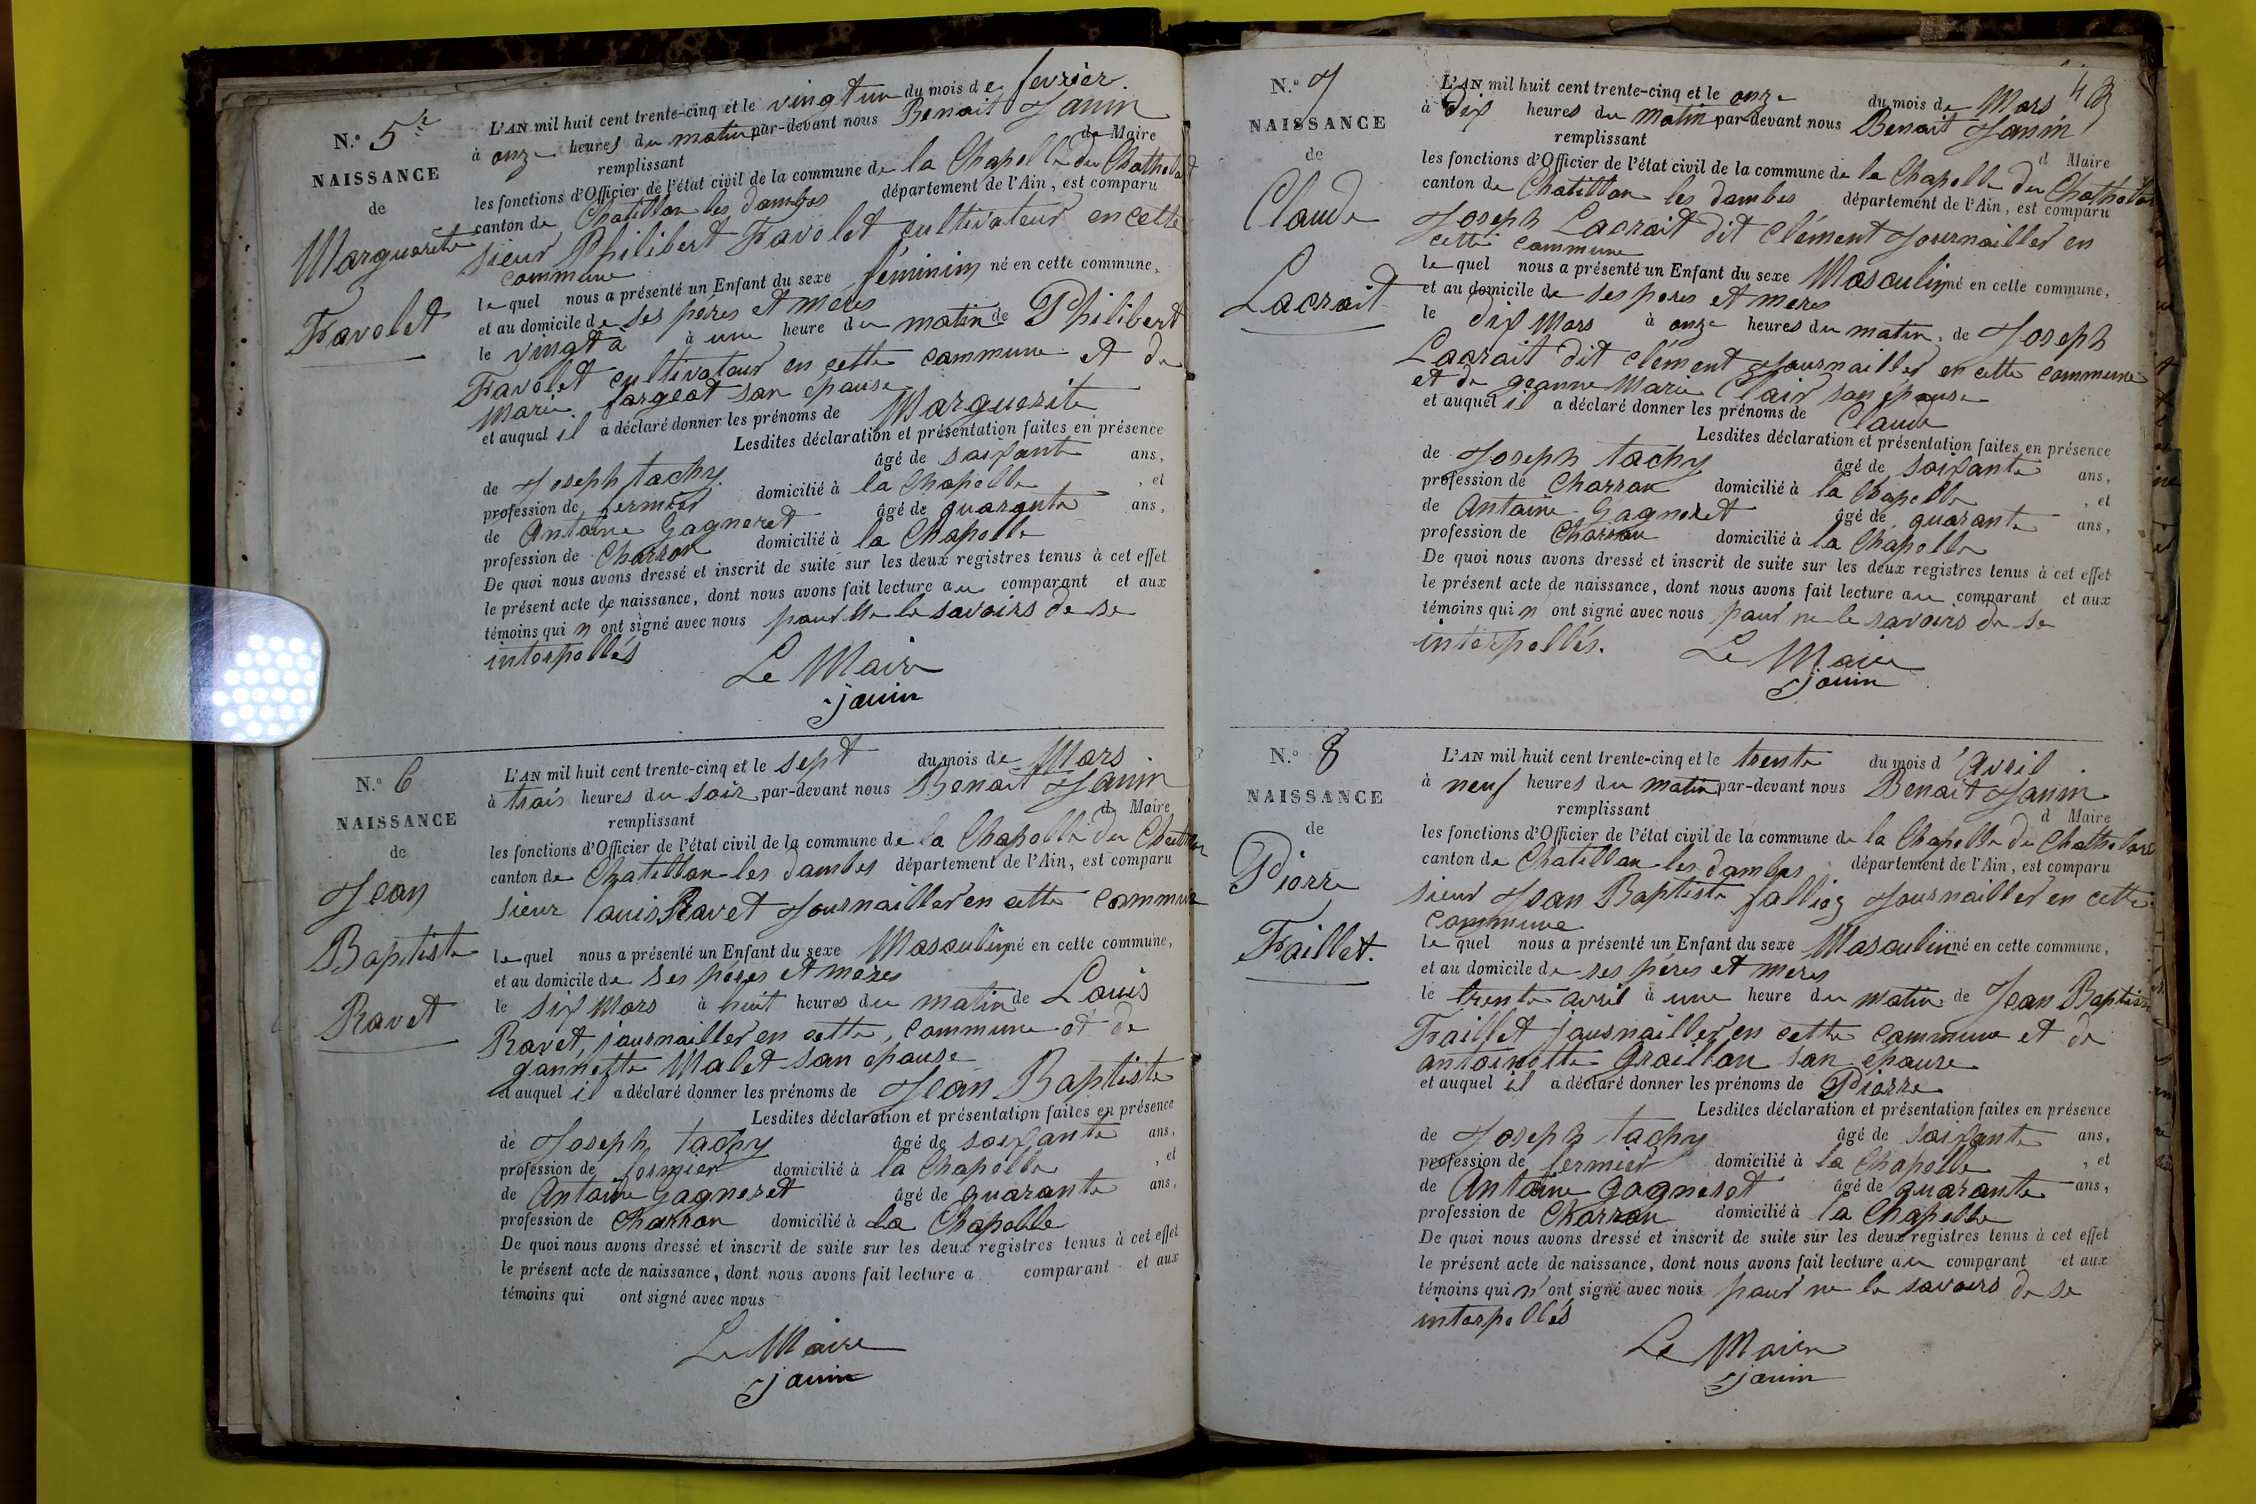 N.o 5e
NAISSANCE
de
Marguerite
Favolet
L'AN mil huit cent trente-cinq et le vingt un du mois de fevrier
à onze heures du matin par-devant nous Benoit Janin
remplissant de Maire
les fonctions d'Officier de l'état civil de la commune de la Chapelle du Chathelard
canton de Chatillon les dombes département de l'Ain, est comparu
sieur Philibert Favolet cultivateur en cette
commune
le quel nous a présenté un Enfant du sexe féminim né en cette commune,
et au domicile de ses péres et méres
le vingt à à une heure du matin de Philibert
Favolet cultivateur en cette commune et de
Marie fargeot son epouse
et auquel il a déclaré donner les prénoms de Marguerite
Lesdites déclaration et présentation faites en présence
de Joseph tachy âgé de soixante ans,
profession de fermier domicilié à la Chapelle , et
de Antoine Gagneret âgé de quarante ans,
profession de Charron domicilié à la Chapelle
De quoi nous avons dressé et inscrit de suite sur les deux registres tenus à cet effet
le présent acte de naissance, dont nous avons fait lecture au comparant et aux
témoins qui n ont signé avec nous pour ne le savoirs de se
interpellés
Le Maire
janin
N.o 6
NAISSANCE
de
Jean
Baptiste
Ravet
L'AN mil huit cent trente-cinq et le sept du mois de Mars
à trois heures du soir par-devant nous Benoit Janin
remplissant d Maire
les fonctions d'Officier de l'état civil de la commune de la Chapelle du
canton de Chatillon les dombes département de l'Ain, est comparu
sieur louis Ravet Journailler en cette commune
le quel nous a présenté un Enfant du sexe Masculin né en cette commune,
et au domicile de ses péres et meres
le six Mars à huit heures du matin de Louis
Ravet, journailler en cette, commune et de
gannette Malet son epouse
et auquel il a déclaré donner les prénoms de Jean Baptiste
Lesdites déclaration et présentation faites en présence
de Joseph tachy âgé de soixante ans,
profession de fermier domicilié à la Chapelle , et
de Antoine Gagneret âgé de quarante ans,
profession de Charron domicilié à la Chapelle
De quoi nous avons dressé et inscrit de suite sur les deux registres tenus à cet effet
le présent acte de naissance, dont nous avons fait lecture a comparant et aux
témoins qui ont signé avec nous
Le Maire
janin
4
N.o 7
NAISSANCE
de
Claude
Lacroit
L'AN mil huit cent trente-cinq et le onze du mois de Mars
à dix heures du matin par-devant nous Benoit Janin
remplissant d Maire
les fonctions d'Officier de l'état civil de la commune de la Chapelle du Chathelard
canton de Chatillon les dombes département de l'Ain, est comparu
Joseph Lacroit dit clément Journailler en
cette commune
le quel nous a présenté un Enfant du sexe Masculin né en cette commune,
et au domicile de ses peres et meres
le dix Mars à onze heures du matin, de Joseph
Lacroit dit clément Journailler en cette commune
et de jeanne Marie Clair son épouse
et auquel il a déclaré donner les prénoms de Claude
Lesdites déclaration et présentation faites en présence
de Joseph tachy âgé de soixante ans,
profession de Charron domicilié à la Chapelle , et
de Antoine Gagneret âgé de quarante ans,
profession de Charron domicilié à la Chapelle
De quoi nous avons dressé et inscrit de suite sur les deux registres tenus à cet effet
le présent acte de naissance, dont nous avons fait lecture au comparant et aux
témoins qui n ont signé avec nous pour ne le savoirs de se
interpellés.
Le Maire
janin
N.o 8
NAISSANCE
de
Pierre
Faillet.
L'AN mil huit cent trente-cinq et le trente du mois d'Avril
à neuf heures du matin par-devant nous Benoit Janin
remplissant d Maire
les fonctions d'Officier de l'état civil de la commune de la Chapelle du Chathelard
canton de Chatillon les dombes département de l'Ain, est comparu
sieur Jean Baptiste Journailler en cette
commune
le quel nous a présenté un Enfant du sexe Masculin né en cette commune,
et au domicile de ses péres et meres
le trente avril à une heure du matin de Jean Baptiste
Faillet journailler en cette commune et de
antoinette Graillon son épouse
et auquel il a déclaré donner les prénoms de Pierre
Lesdites déclaration et présentation faites en présence
de Joseph tachy âgé de soixante ans,
profession de fermier domicilié à la Chapelle , et
de Antoine gagneret âgé de quarante ans,
profession de Charron domicilié à la Chapelle
De quoi nous avons dressé et inscrit de suite sur les deux registres tenus à cet effet
le présent acte de naissance, dont nous avons fait lecture au comparant et aux
témoins qui n'ont signé avec nous pour ne le savoirs de se
interpellés
Le Maire
janin